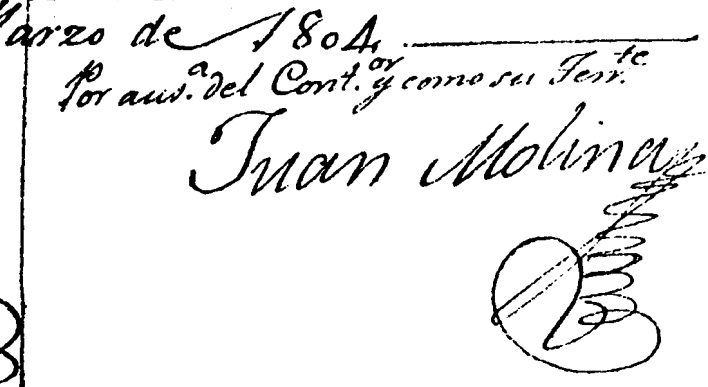 Marzo de 1804.
Por aus.ª del Cont.or y como su Ten.te
Juan Molina